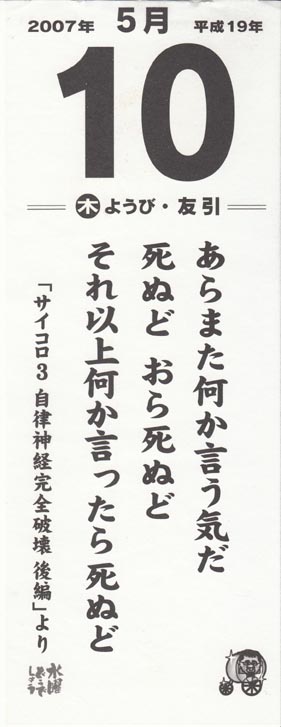 2007年 5月 平成19年
10
木 ようび・友引
あらまた何か言う気だ
死ぬど おら死ぬど
それ以上何か言ったら死ぬど
「サイコロ3 自律神経完全破壊 後編」より
水曜
どうで
しょう